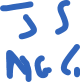 JS
NGC.